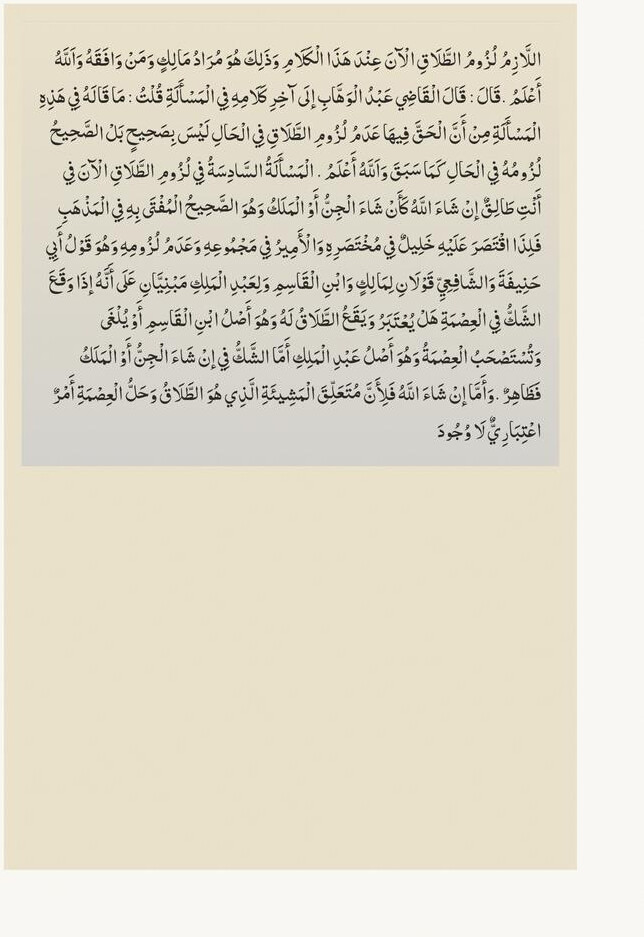 اللَّازِمُ لُزُومُ الطَّلَاقِ الْآنَ عِنْدَ هَذَا الْكَلَامِ وَذَلِكَ هُوَ مُرَادُ مَالِكٍ وَمَنْ وَافَقَهُ وَاَللَّهُ
أَعْلَمُ .قَالَ : قَالَ الْقَاضِي عَبْدُ الْوَهَّابِ إلَى آخِرِ كَلَامِهِ فِي الْمَسْأَلَةِ قُلْتُ : مَا قَالَهُ فِي هَذِهِ
الْمَسْأَلَةِ مِنْ أَنَّ الْحَقَّ فِيهَا عَدَمُ لُزُومِ الطَّلَاقِ فِي الْحَالِ لَيْسَ بِصَحِيحٍ بَلْ الصَّحِيحُ
لُزُومُهُ فِي الْحَالِ كَمَا سَبَقَ وَاَللَّهُ أَعْلَمُ . الْمَسْأَلَةُ السَّادِسَةُ فِي لُزُومِ الطَّلَاقِ الْآنَ فِي
أَنْتِ طَالِقٌ إنْ شَاءَ اللَّهُ كَأَنْ شَاءَ الْجِنُّ أَوْ الْمَلَكُ وَهُوَ الصَّحِيحُ الْمُفْتَى بِهِ فِي الْمَذْهَبِ
فَلِذَا اقْتَصَرَ عَلَيْهِ خَلِيلٌ فِي مُخْتَصَرِهِ وَالْأَمِيرُ فِي مَجْمُوعِهِ وَعَدَمُ لُزُومِهِ وَهُوَ قَوْلُ أَبِي
حَنِيفَةَ وَالشَّافِعِيِّ قَوْلَانِ لِمَالِكٍ وَابْنِ الْقَاسِمِ وَلِعَبْدِ الْمَلِكِ مَبْنِيَّانِ عَلَى أَنَّهُ إذَا وَقَعَ
الشَّكُّ فِي الْعِصْمَةِ هَلْ يُعْتَبَرُ وَيَقَعُ الطَّلَاقُ لَهُ وَهُوَ أَصْلُ ابْنِ الْقَاسِمِ أَوْ يُلْغَى
وَتُسْتَصْحَبُ الْعِصْمَةُ وَهُوَ أَصْلُ عَبْدِ الْمَلِكِ أَمَّا الشَّكُّ فِي إنْ شَاءَ الْجِنُّ أَوْ الْمَلَكُ
فَظَاهِرٌ .وَأَمَّا إنْ شَاءَ اللَّهُ فَلِأَنَّ مُتَعَلِّقَ الْمَشِيئَةِ الَّذِي هُوَ الطَّلَاقُ وَحَلُّ الْعِصْمَةِ أَمْرٌ
اعْتِبَارِيٌّ لَا وُجُودَ